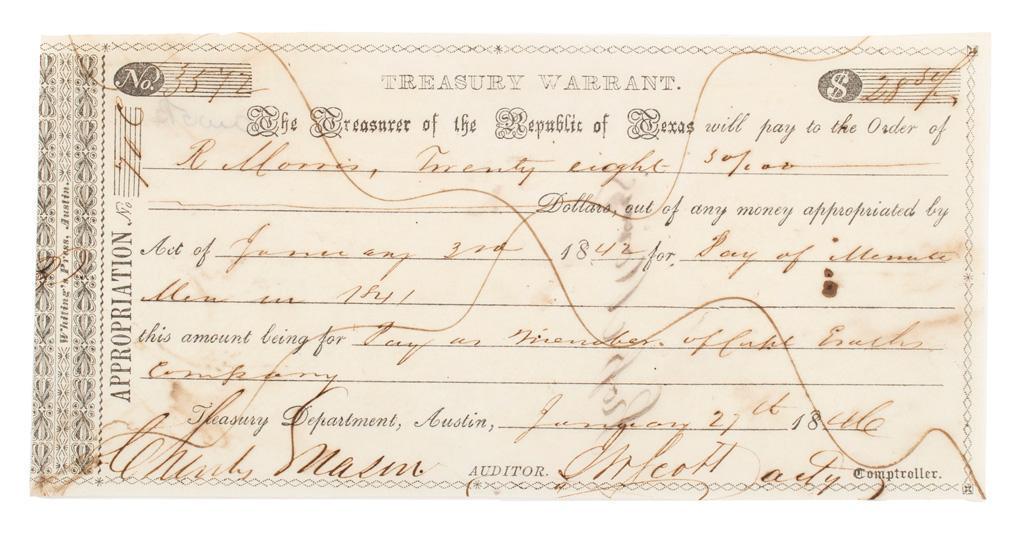 No. 3572
TREASURY WARRANT.
$ 28 50/
The Treasurer of the Republic of Texas will pay to the Order of
R Morris, Twenty eight 50/100
Dollars, out of any money appropriated by
Act of January 3rd 1842 for Pay of Minute
Men in 1841
this amount being for Pay as Member of Capt Eraths
Company
Treasury Department, Austin, January 27th 1846
Charles Mason AUDITOR. J W Scott acty Comptroller.
APPROPRIATION No
Whiting's Press, Austin.